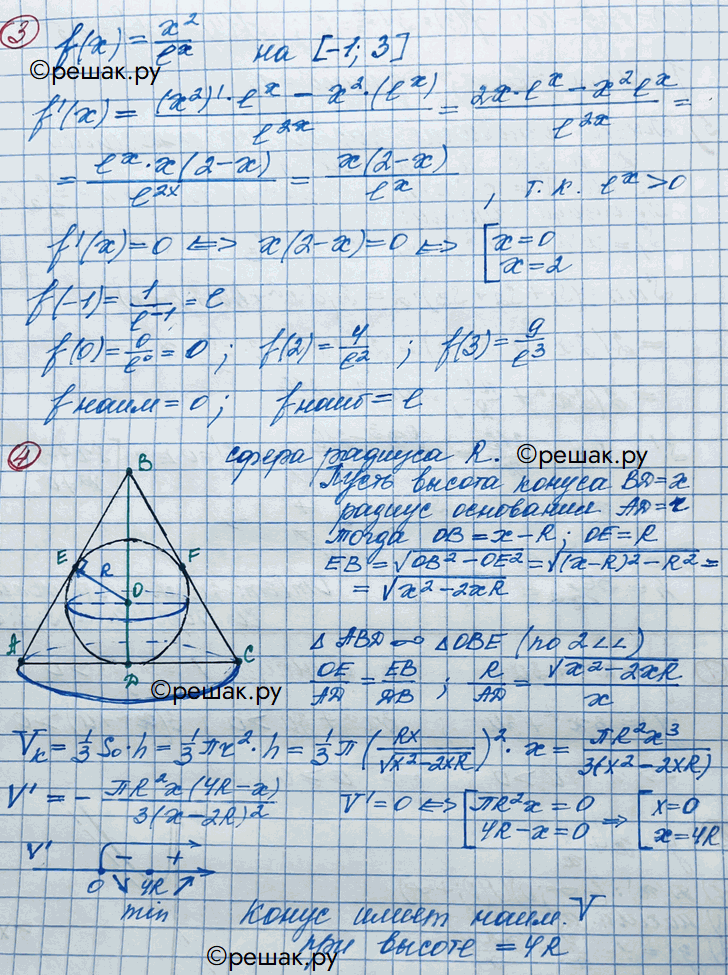 ③ f(x) = x²/eˣ на [-1; 3]
©решак.ру
f'(x) = ((x²)'·eˣ - x²·(eˣ))/e²ˣ = (2x·eˣ - x²eˣ)/e²ˣ =
= (eˣ·x(2-x))/e²ˣ = x(2-x)/eˣ , т.к. eˣ>0
f'(x)=0 ⟺ x(2-x)=0 ⟺ [x=0 x=2
f(-1)= 1/e⁻¹ = e
f(0)= 0/e⁰ = 0 ; f(2)= 4/e² ; f(3)= 9/e³
fнаим=0; fнаиб=e
④ сфера радиуса R. ©решак.ру
Пусть высота конуса BD=x
радиус основания AD=r
тогда OB=x-R; OE=R
EB=√(OB²-OE²)=√((x-R)²-R²)=
=√(x²-2xR)
B
E F
R
O
A D C
©решак.ру
△ABD ∾ △OBE (по 2∠∠)
OE/AD = EB/DB ; R/AD = √(x²-2xR)/x
Vк = 1/3 So·h = 1/3 πr²·h = 1/3 π(Rx/√(x²-2xR))²·x = πR²x³/3(x²-2xR)
V' = - πR²x(4R-x)/3(x-2R)² V'=0 ⟺ [πR²x=0 4R-x=0 ⇒ [x=0 x=4R
V' - +
0 ↘ 4R ↗
min Конус имеет наим. V
при высоте = 4R
©решак.ру